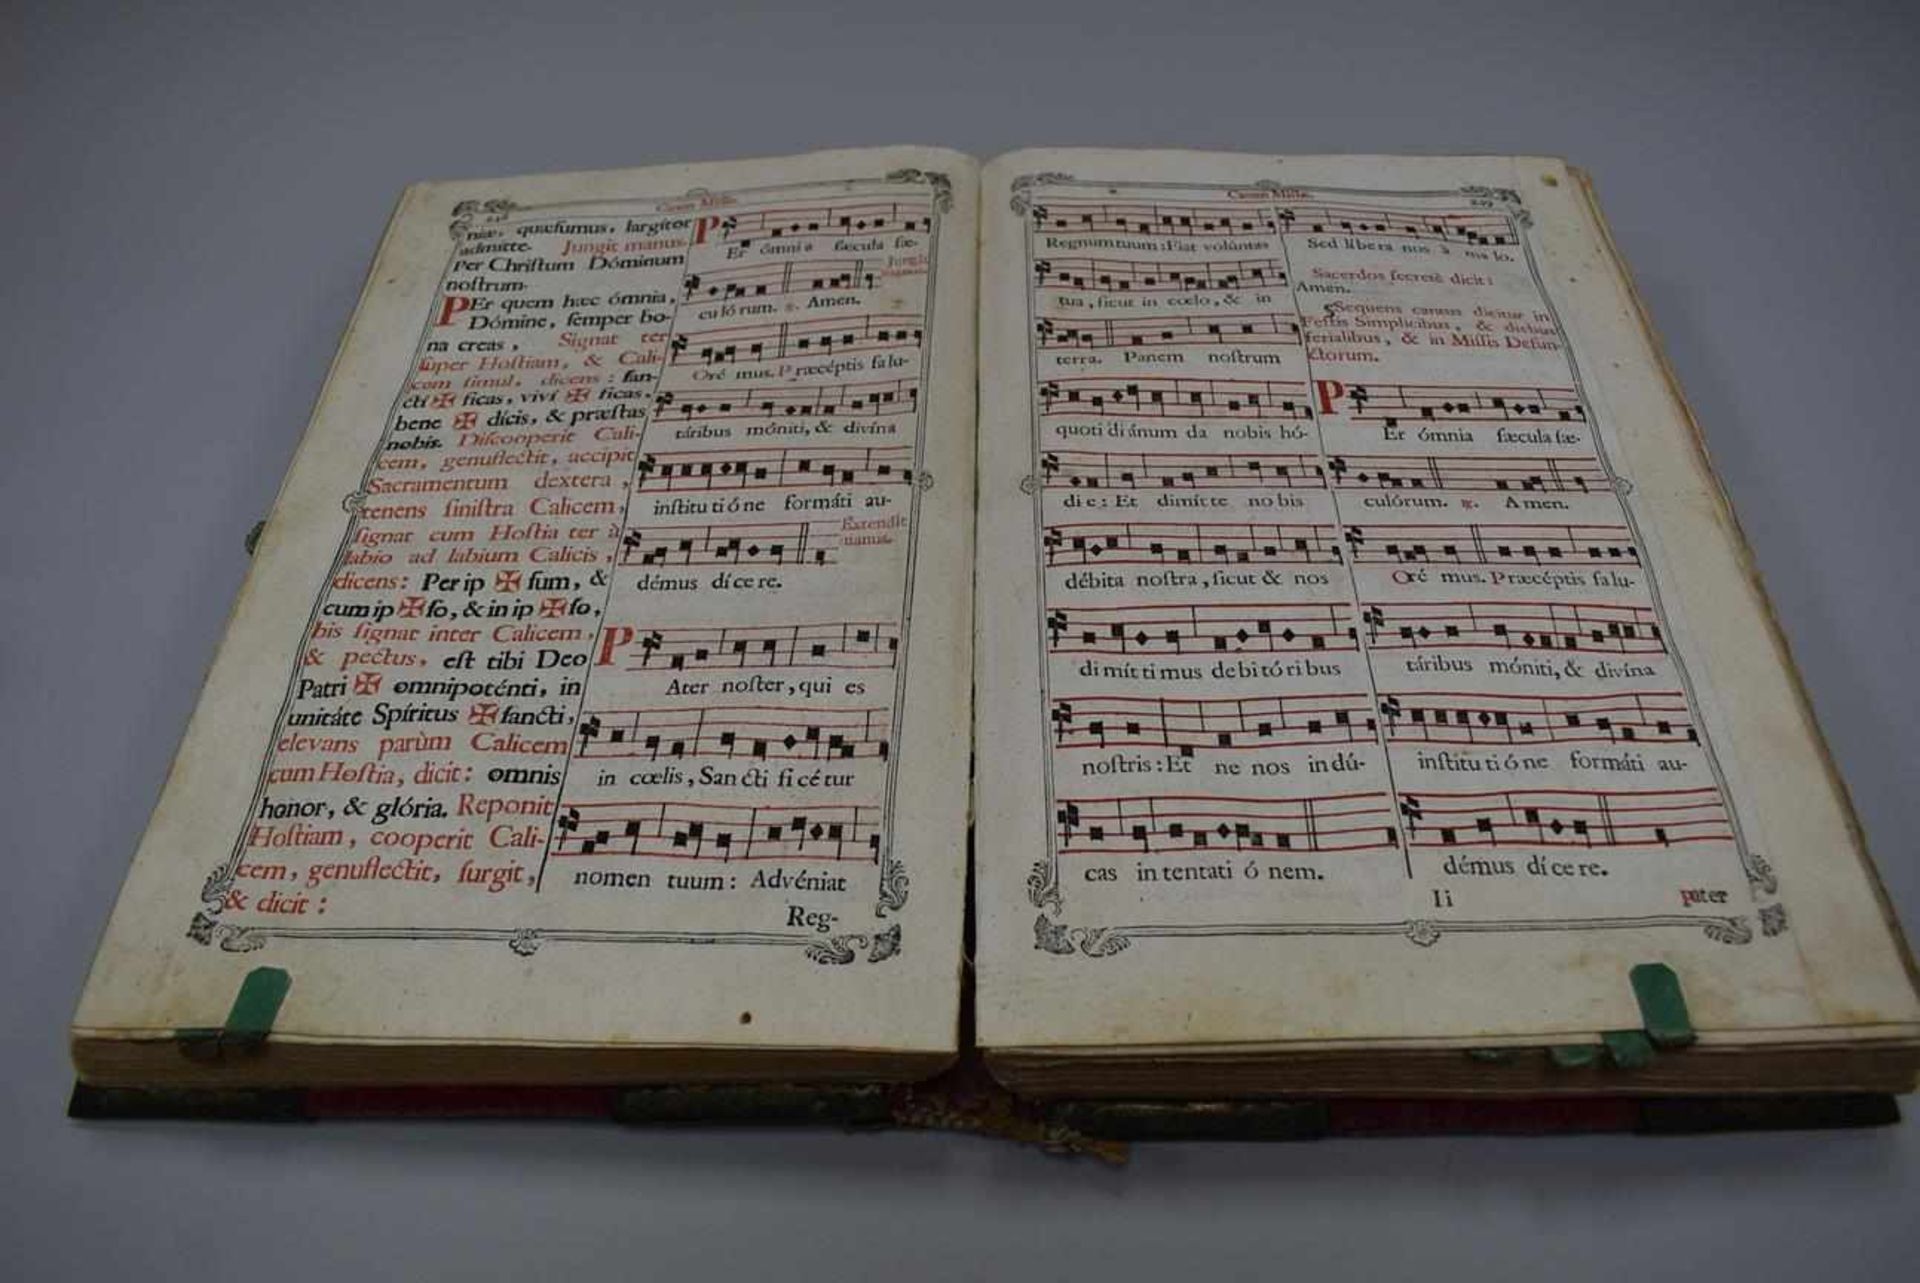 Canon Missæ.
niæ, quæſumus, largítor
admitte. Jungit manus.
Per Chriſtum Dóminum
noſtrum.
PEr quem hæc ómnia,
Dómine, ſemper bo-
na creas, Signat ter
ſuper Hoſtiam, & Cali-
cem ſimul, dicens: ſan-
ctí ✠ ficas, viví ✠ ficas,
bene ✠ dícis, & præſtas
nobis. Diſcooperit Cali-
cem, genuflectit, accipit
Sacramentum dextera,
tenens ſiniſtra Calicem,
ſignat cum Hoſtia ter à
labio ad labium Calicis,
dicens: Per ip ✠ ſum, &
cum ip ✠ ſo, & in ip ✠ ſo,
bis ſignat inter Calicem,
& pectus, eſt tibi Deo
Patri ✠ omnipoténti, in
unitáte Spíritus ✠ ſancti,
elevans parùm Calicem
cum Hoſtia, dicit: omnis
honor, & glória. Reponit
Hoſtiam, cooperit Cali-
cem, genuflectit, ſurgit,
& dicit:
P
Er ómni a ſæcula ſæ-
Jungit
manus.
cu ló rum. ℟. Amen.
Oré mus. Præcéptis ſalu-
táribus móniti, & divína
inſtitu ti ó ne formáti au-
Extendit
manus.
démus dí ce re.
P
Ater noſter, qui es
in cœlis, San cti fi cé tur
nomen tuum: Advéniat
Reg-
Canon Miſſæ.
249
Regnum tuum: Fiat volúntas
tua, ſicut in cœlo, & in
terra. Panem noſtrum
quoti di ánum da nobis hó-
di e: Et dimít te no bis
débita noſtra, ſicut & nos
di mít ti mus de bi tó ri bus
noſtris: Et ne nos in dú-
cas in tentati ó nem.
Sed lí be ra nos à ma lo.
Sacerdos ſecretè dicit:
Amen.
Sequens cantus dicitur in
Feſtis Simplicibus, & diebus
ferialibus, & in Miſſis Defun-
ctorum.
P
Er ómnia ſæcula ſæ-
culórum. ℟. A men.
Oré mus. Præcéptis ſalu-
táribus móniti, & divína
inſtitu ti ó ne formáti au-
démus dí ce re.
I i
pater